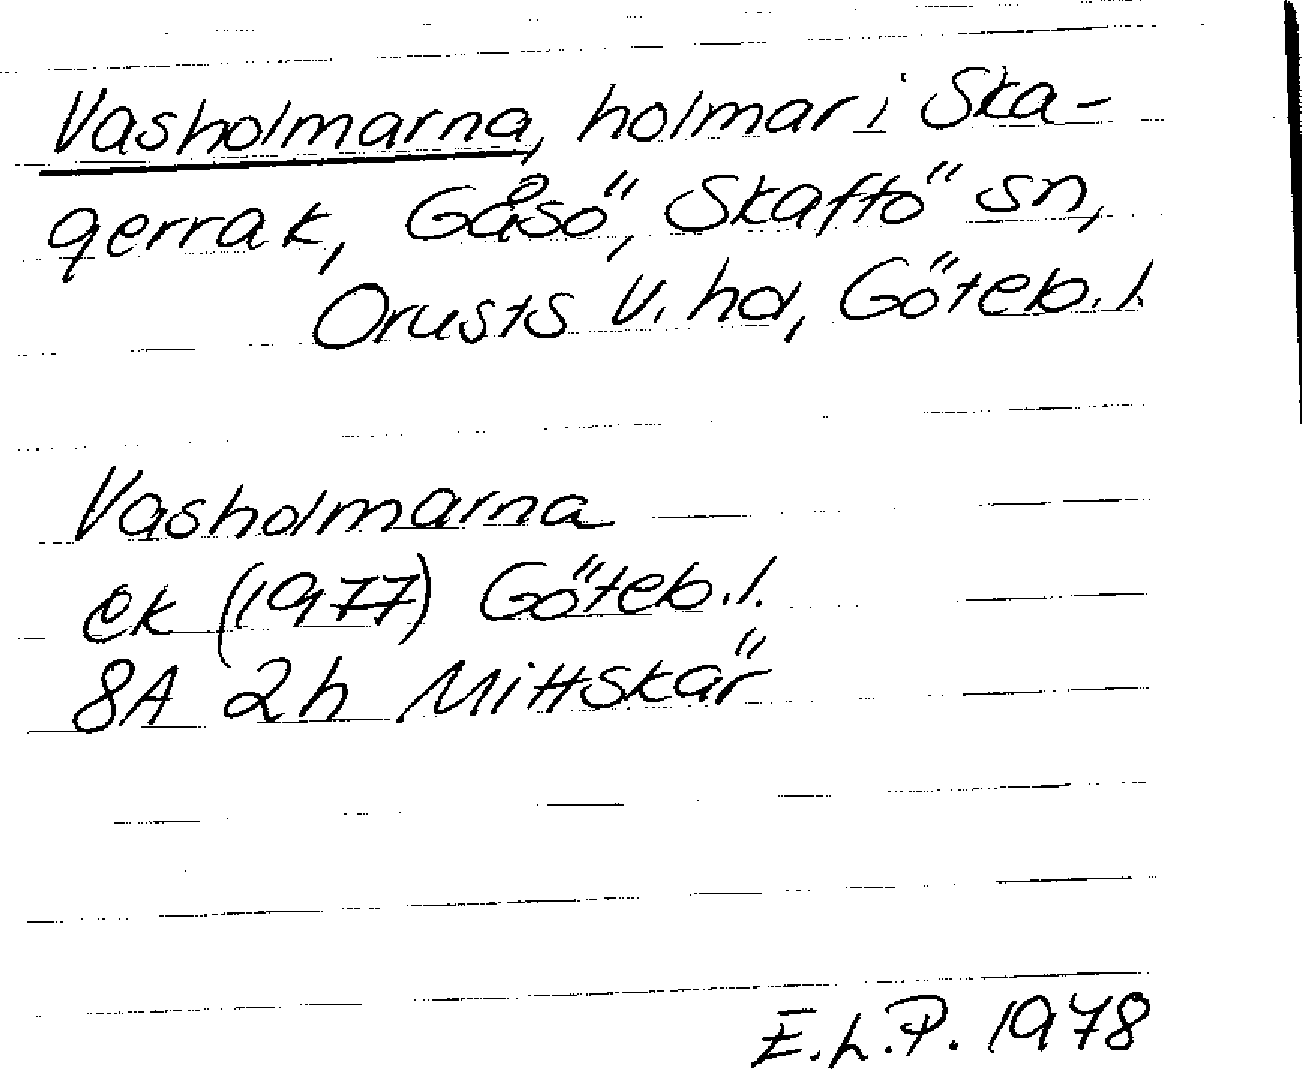 Vasholmarna, holmar i Ska-
gerrak, Gåsö, Skaftö sn,
Orusts V. hd, Göteb.l.
Vasholmarna
ek (1977) Göteb.l.
8A 2h Mittskär
E.L.P. 1978